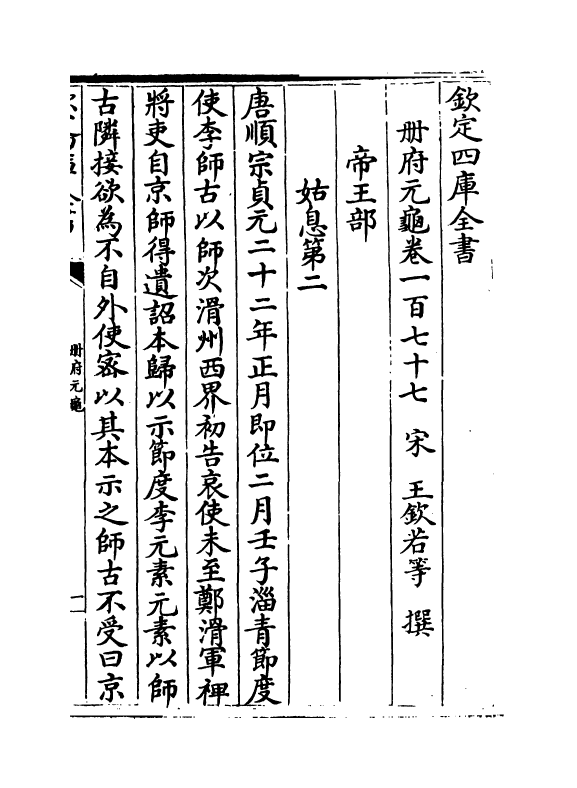 欽定四庫全書
册府元龜卷一百七十七　宋　王欽若等　撰
帝王部
姑息第二
唐順宗貞元二十二年正月即位二月壬子淄青節度
使李師古以師次滑州西界初告哀使未至鄭滑軍裨
將吏自京師得遺詔本歸以示節度李元素元素以師
古隣接欲為不自外使宻以其本示之師古不受曰京
册府元龜